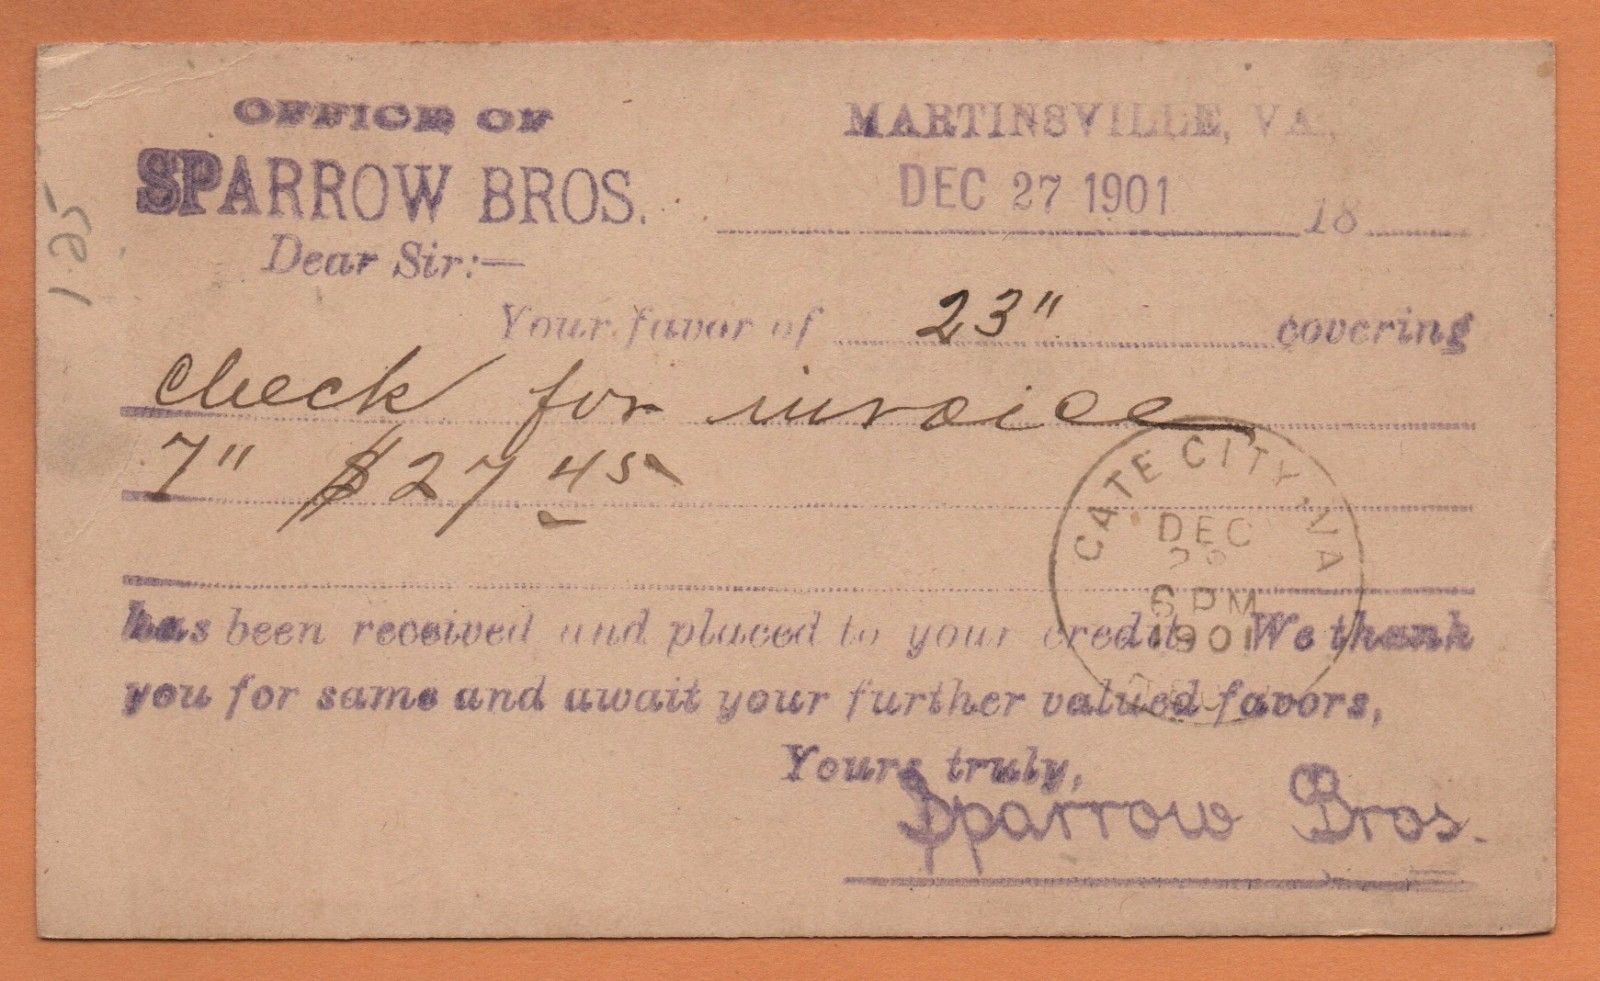 OFFICE OF
SPARROW BROS.
MARTINSVILLE, VA.,
DEC 27 1901 18
Dear Sir:—
Your favor of 23" covering
check for invoice
7" $27 45
has been received and placed to your credit. We thank
you for same and await your further valued favors,
Yours truly,
Sparrow Bros.
GATE CITY, VA
DEC
6 PM
1901
1.25